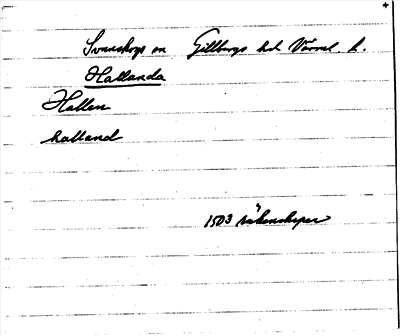 Svanskogs sn Gillbergs hd Värml. l.
Hallanda
Hallen
halland
1503 räkenskaper